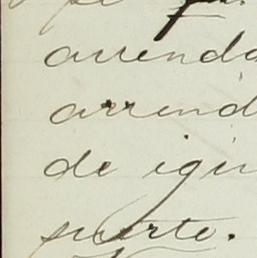 arrenda
arrend
de igu
suerte.